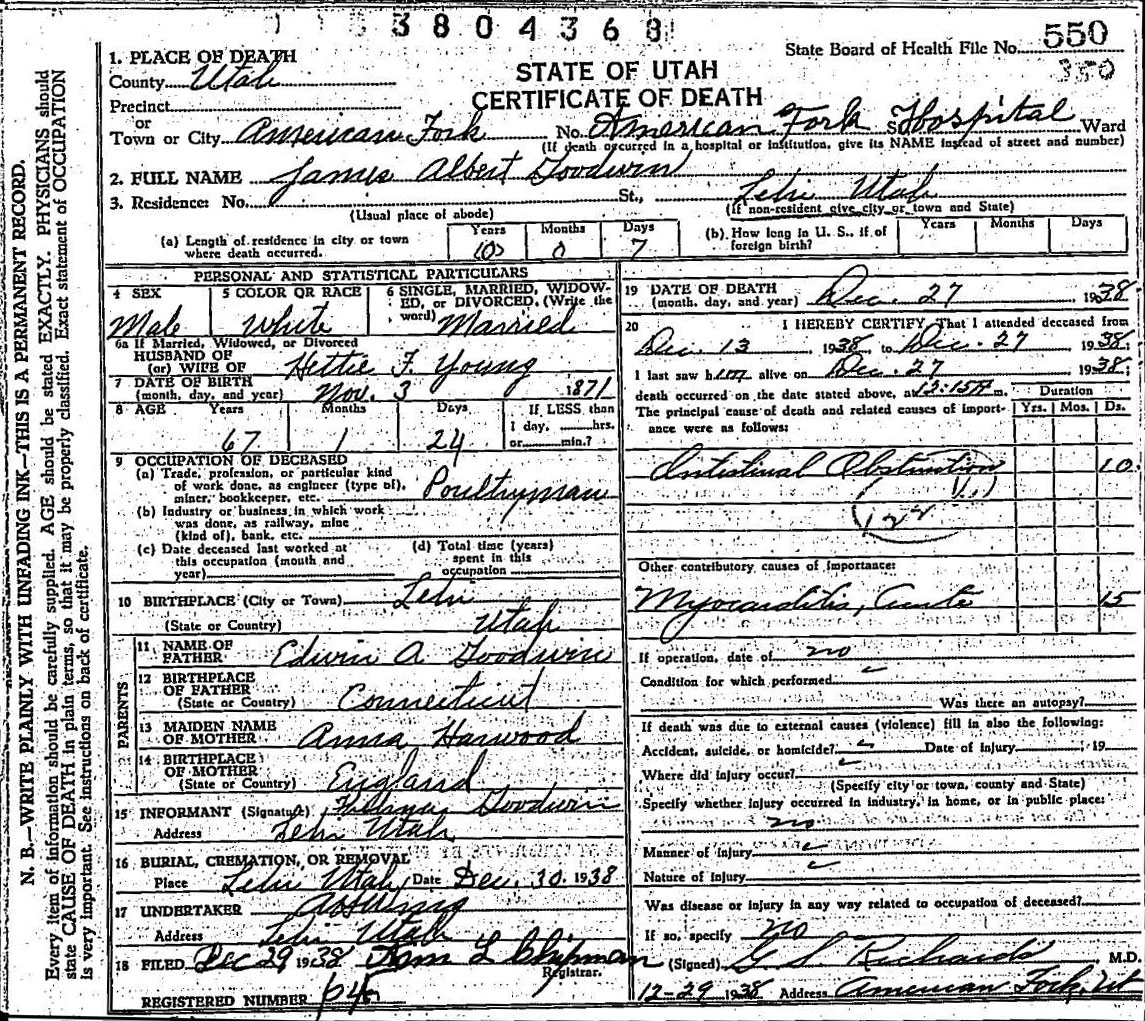 3804368
State Board of Health File No. 550
350
STATE OF UTAH
CERTIFICATE OF DEATH
1. PLACE OF DEATH
County Utah
Precinct
or
Town or City American Fork No. American Fork Hospital Ward
(If death occurred in a hospital or institution, give its NAME instead of street and number)
2. FULL NAME James Albert Goodwin
3. Residence: No. St., Lehi Utah
(Usual place of abode) (If non-resident give city or town and State)
(a) Length of residence in city or town where death occurred. Years Months 0 Days 7
(b) How long in U. S., if of foreign birth? Years Months Days
PERSONAL AND STATISTICAL PARTICULARS
4 SEX Male
5 COLOR OR RACE White
6 SINGLE, MARRIED, WIDOWED, or DIVORCED, (Write the word) Married
6a If Married, Widowed, or Divorced
HUSBAND OF
(or) WIFE OF Hettie F. Young
7 DATE OF BIRTH
(month, day, and year) Nov. 3 1871
8 AGE Years 67 Months 1 Days 24 If LESS than 1 day, hrs. or min.?
9 OCCUPATION OF DECEASED
(a) Trade, profession, or particular kind of work done, as engineer (type of), miner, bookkeeper, etc. Poultryman
(b) Industry or business in which work was done, as railway, mine (kind of), bank, etc.
(c) Date deceased last worked at this occupation (month and year)
(d) Total time (years) spent in this occupation
10 BIRTHPLACE (City or Town) Lehi
(State or Country) Utah
PARENTS
11 NAME OF FATHER Edwin A. Goodwin
12 BIRTHPLACE OF FATHER
(State or Country) Connecticut
13 MAIDEN NAME OF MOTHER Anna Harwood
14 BIRTHPLACE OF MOTHER
(State or Country) England
15 INFORMANT (Signature) Goodwin
Address Lehi Utah
16 BURIAL, CREMATION, OR REMOVAL
Place Lehi Utah Date Dec. 30. 1938
17 UNDERTAKER
Address Lehi Utah
18 FILED Dec 29 1938 L Chipman
Registrar.
REGISTERED NUMBER
19 DATE OF DEATH
(month, day, and year) Dec. 27 1938
20 I HEREBY CERTIFY, That I attended deceased from
Dec. 13 1938, to Dec. 27 1938.
I last saw him alive on Dec. 27 1938;
death occurred on the date stated above, at 12:15A m.
The principal cause of death and related causes of importance were as follows:
Duration
Yrs. Mos. Ds.
Intestinal Obstruction 10
122
Other contributory causes of importance:
Myocarditis, Acute 15
If operation, date of no
Condition for which performed
Was there an autopsy?
If death was due to external causes (violence) fill in also the following:
Accident, suicide, or homicide? Date of injury 19
Where did injury occur?
(Specify city or town, county and State)
Specify whether injury occurred in industry, in home, or in public place:
no
Manner of injury
Nature of injury
Was disease or injury in any way related to occupation of deceased?
If so, specify no
(Signed) G S Richards M.D.
12-29 1938 Address American Fork, Ut
N. B.—WRITE PLAINLY WITH UNFADING INK—THIS IS A PERMANENT RECORD.
Every item of information should be carefully supplied. AGE should be stated EXACTLY. PHYSICIANS should
state CAUSE OF DEATH in plain terms, so that it may be properly classified. Exact statement of OCCUPATION
is very important. See instructions on back of certificate.